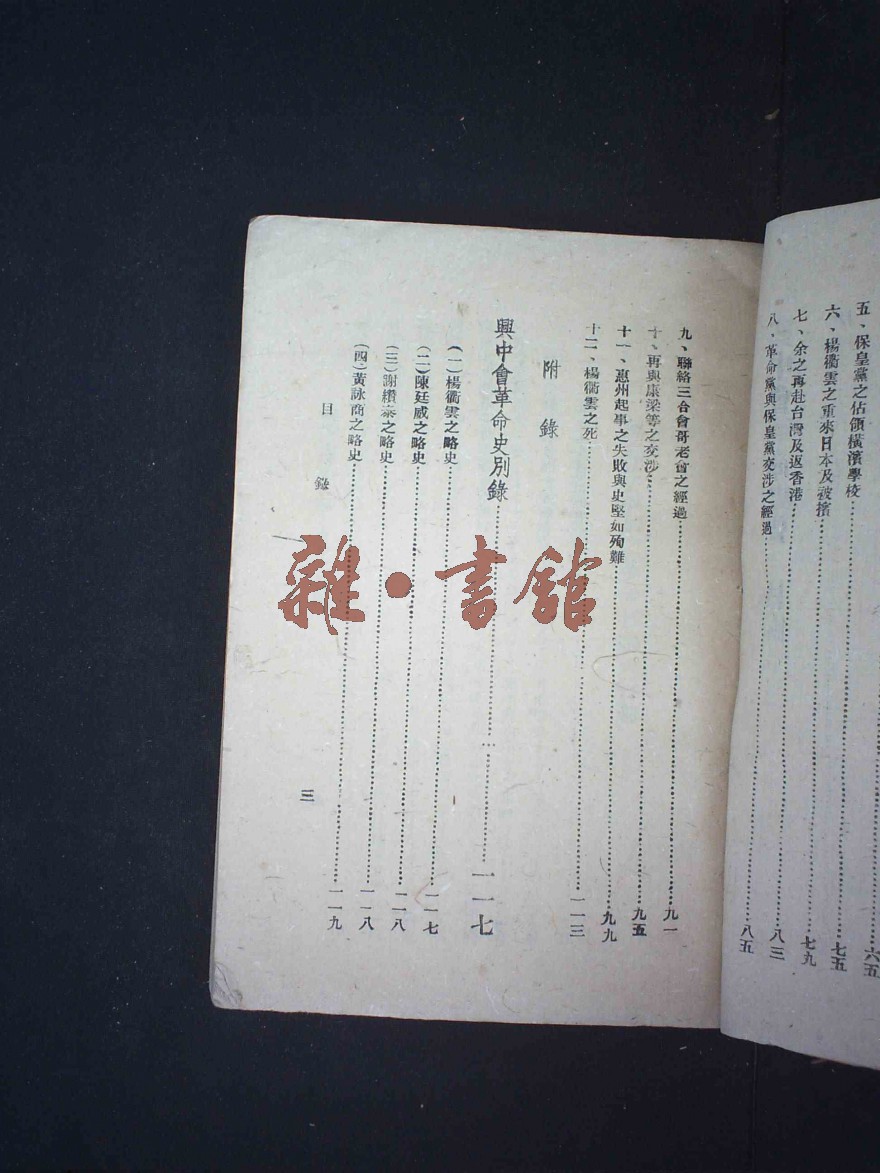 五、保皇黨之佔領橫濱學校……六五
六、楊衢雲之重來日本及被擯……七五
七、余之再赴台灣及返香港……七九
八、革命黨與保皇黨交涉之經過……八三
八五
九、聯絡三合會哥老會之經過……九一
十、再與康梁等之交涉……九五
十一、惠州起事之失敗與史堅如殉難……九九
十二、楊衢雲之死……一一三
附錄
興中會革命史別錄……一一七
(一)楊衢雲之略史……一一七
(二)陳廷威之略史……一一八
(三)謝纘泰之略史……一一八
(四)黃詠商之略史……一一九
目錄
三
雜·書館